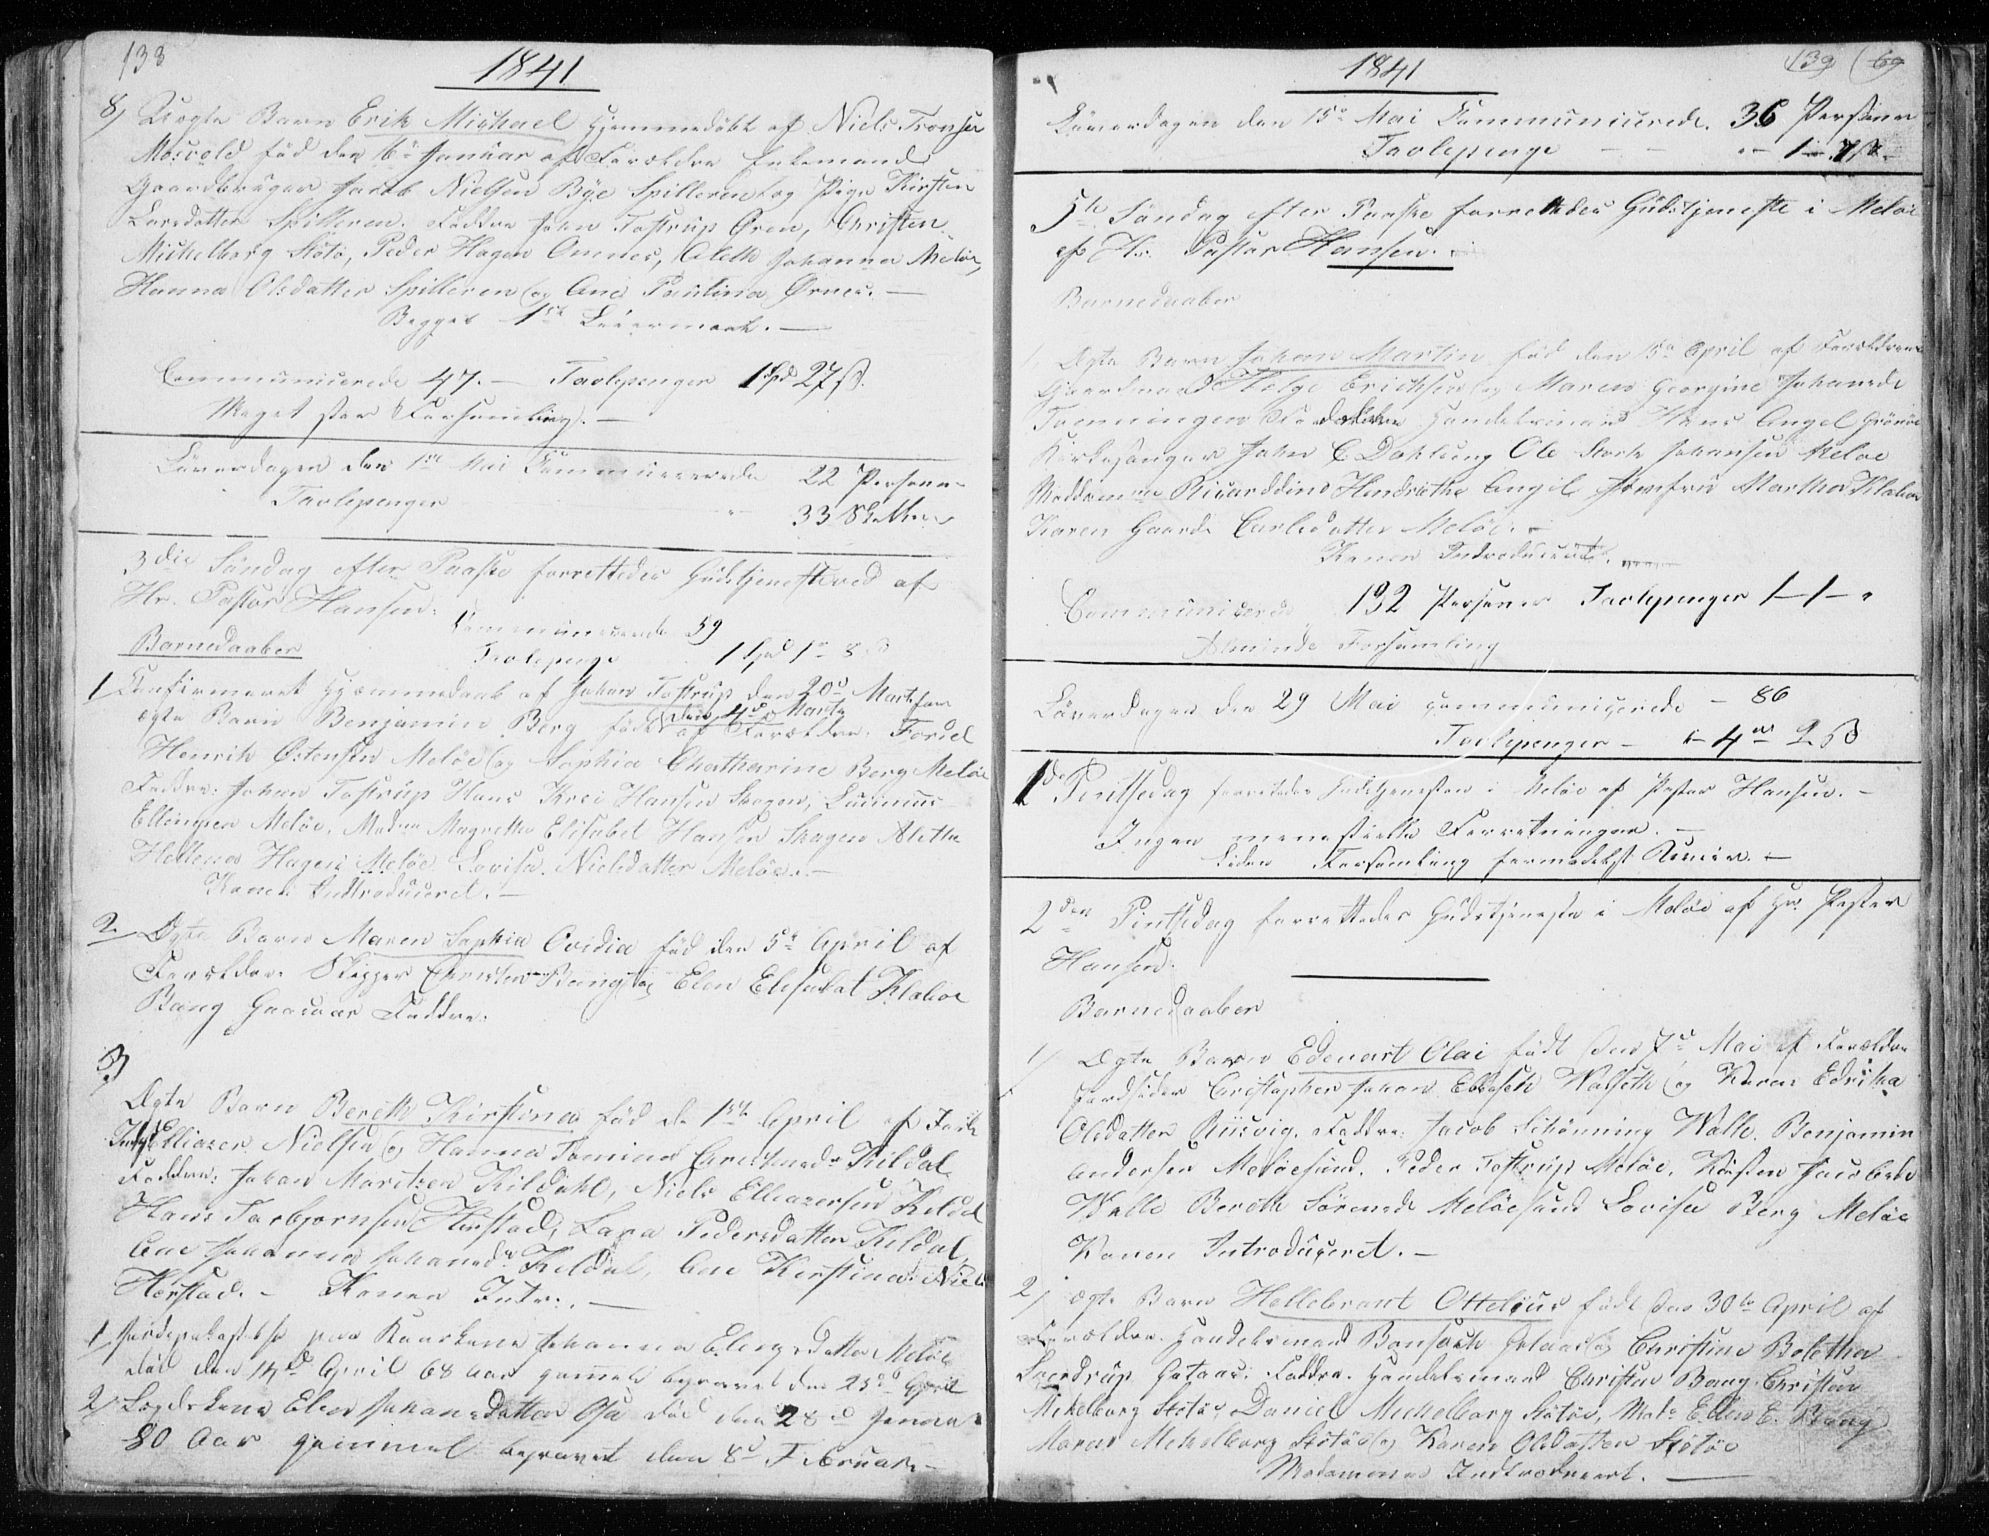 138
1841
8) Uægte Barn Erik Michael hjemmedøbt af Niels Tronsen
Mosvold fød den 6te Januar af Forældre Enkemand
Gaardbruger Jacob Nielsen Bye Spilleren og Pige Kirsten
Larsdatter Spilleren. Faddre John Tostrup Øren, Christen
Mickelborg Støtø, Peder Hagen Omnes, Aleth Johanna Meløe,
Hanna Olsdatter Spilleren og Ane Paulina Ørnes. —
Begges 1ste Leiermaal. —
Communicerede 47. — Tavlepenger 1 Spd 27 ß.
Meget stor Forsamling. —
Løverdagen den 1ste Mai Communicerede 22 Personer
Tavlepenger " 33 Skilling
3die Søndag efter Paaske forrettedes Gudstjenesten ved af
Hr. Pastor Hansen.
Communicerede 59
Barnedaaber
Tavlepenge 1 Spd 1 8 ß
1 Confirmeret Hjemmedaab af Johan Tostrup den 20de Marts for
ægte Barn Benjamin Berg født den 4de Marts af Forældre: Foged
Henrik Østensen Meløe og Sophia Chatharine Berg Meløe
Faddre: Johan Tostrup Hans Krei Hansen Skagen, Lucinius
Ellingsen Meløe, Madm Magrethe Elisabet Hansen Skagen Aletta
Hellena Hagen Meløe Lovisa Nielsdatter Meløe. —
Konen Introduceret. —
2 Ægte Barn Maren Sophia Ovidia fød den 5te April af
Forældre: Skipper Christen Bang og Elen Elisabet Klæboe
Bang Gaasvær Faddre:
3)
Ægte Barn Bereth Kirstina fød de 1ste April af
Elliazer Nielsen og Hanna Tomina Kildal
Faddre: Johan Moritzen Kildahl, Niels Elleazersen Kildal
Hans Torbjornsen Horstad, Lara Pedersdatter Kildal,
Ane Johanna Johansd. Kildal, Ane Kirstina Niels
Horstad. — Konen Intr: —
1 Jordspaakastelse paa Johanna Elingsdatter Meløe
død den 14de April 68 Aar gammel begravet den 25de April
2) Lægdskone Elen Johannsdatter Osa død den 28de Januar
80 Aar gammel begravet den 8de Februar —
1841
139 69
Løverdagen den 15de Mai Communicerede 36 Personer
Tavlepenge - - " 1 -
5te Søndag efter Paaske forrettedes Gudstjeneste i Meløe
af Hr. Pastor Hansen.
Barnedaaber
1 Ægte Barn Johan Martin fød den 15de April af Forældrene
Gaardmand Helge Erichsen og Maren Georgine Johansd.
Tomningen Faddre Handelsmand Hans Angel Grønøe
Kirkesanger John C Dahlung Ole Johansen Meløe
Maddamme Ricarddine Hendrikke Angel Jomfru Martha Klæboe
Karen Gaarde Carlsdatter Meløe. —
Konen Introduceret.
Communicerede 132 Personer Tavlepenger 1 - 1 - "
Alminde Forsamling
Løverdagen den 29 Mai communicerede — 86
Tavlepenger — 4 2 ß
1de Pintsedag forrettedes Gudstjenesten i Meløe af Pastor Hansen. —
Ingen menestrielle Forretninger. —
Liden Forsamling formedelst. —
2den Pintsedag forrettedes Gudstjeneste i Meløe af Hr. Pastor
Hansen.
Barnedaaber
1) Ægte Barn Edevart Olai født den 7de Mai af Forældre
Jordsider Christopher Johan Ebbesen Walseth og Karen Edriska
Olsdatter Riisvig. Faddre: Jacob Schønning Walle, Benjamin
Andersen Meløesund, Peder Tostrup Meløe, Kirsten Jacobsd.
Walle Bereth Sørensd. Meløesund Lovisa Berg Meløe
Konen Introduceret. —
2) Ægte Barn Hellebrant Ottelius født den 30te April af
Forældre Handelsmand Bonsach Gataas og Christine Boletha
Lorstrup Gataas. Faddre. Handelsmand Christen Bang Christen
Mikelborg Støtøe, Daniel Mickelborg Støtøe, Mad: Ellen E. Bang
Maren Mikelborg Støtøe og Karen Olsdatter Støtøe
Madammen Indtroduceert. —